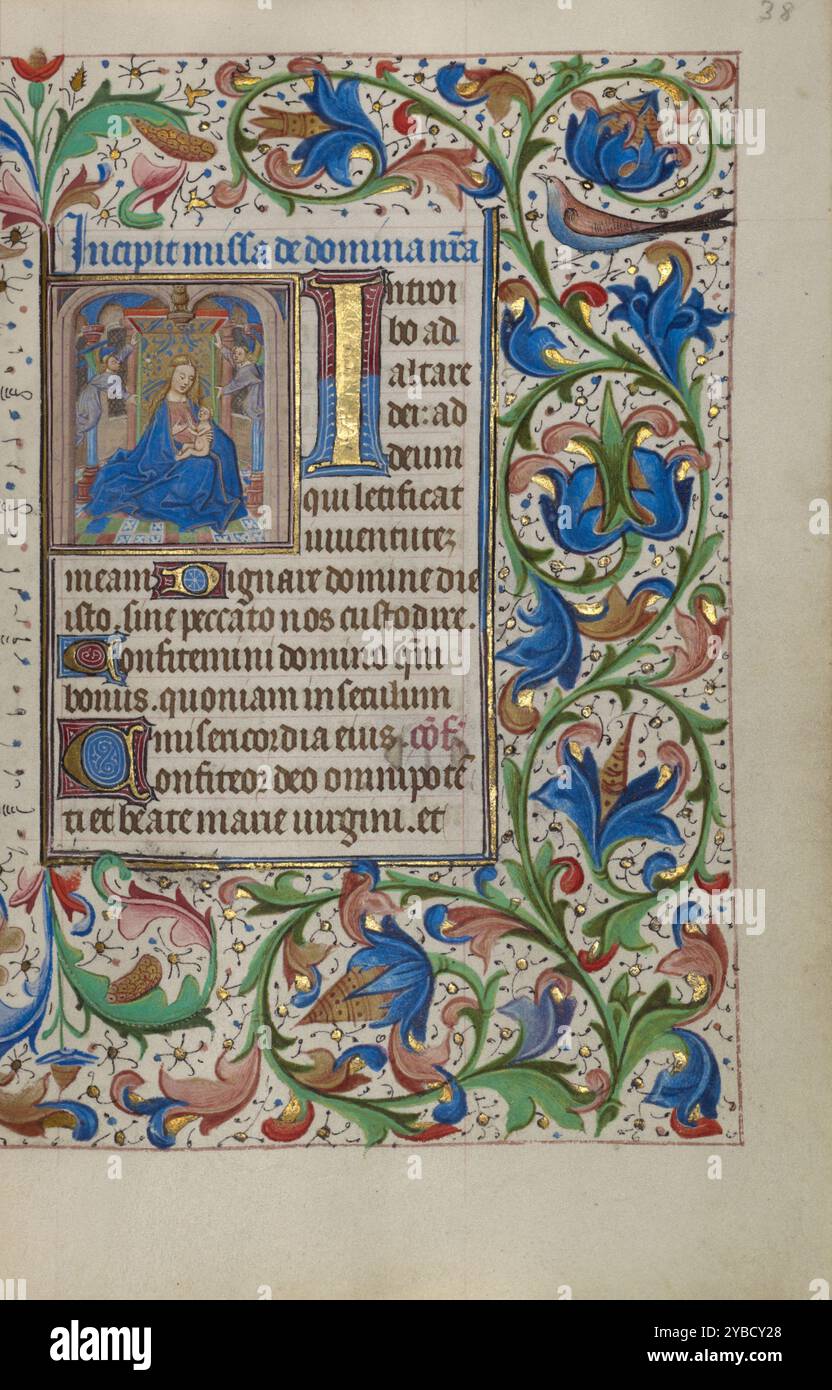 38
Incipit missa de domina nr̄a
Introi
bo ad
altare
dei: ad
deum
qui letificat
iuuentutez
meam Dignare domine die
isto. sine peccato nos custodire.
Confitemini domino qm̄
bonus. quoniam in seculum
misericordia eius. cōf.
Confiteor deo omnipotē
ti et beate marie uirgini. et
alamy
Image ID: 2YBCY28
www.alamy.com